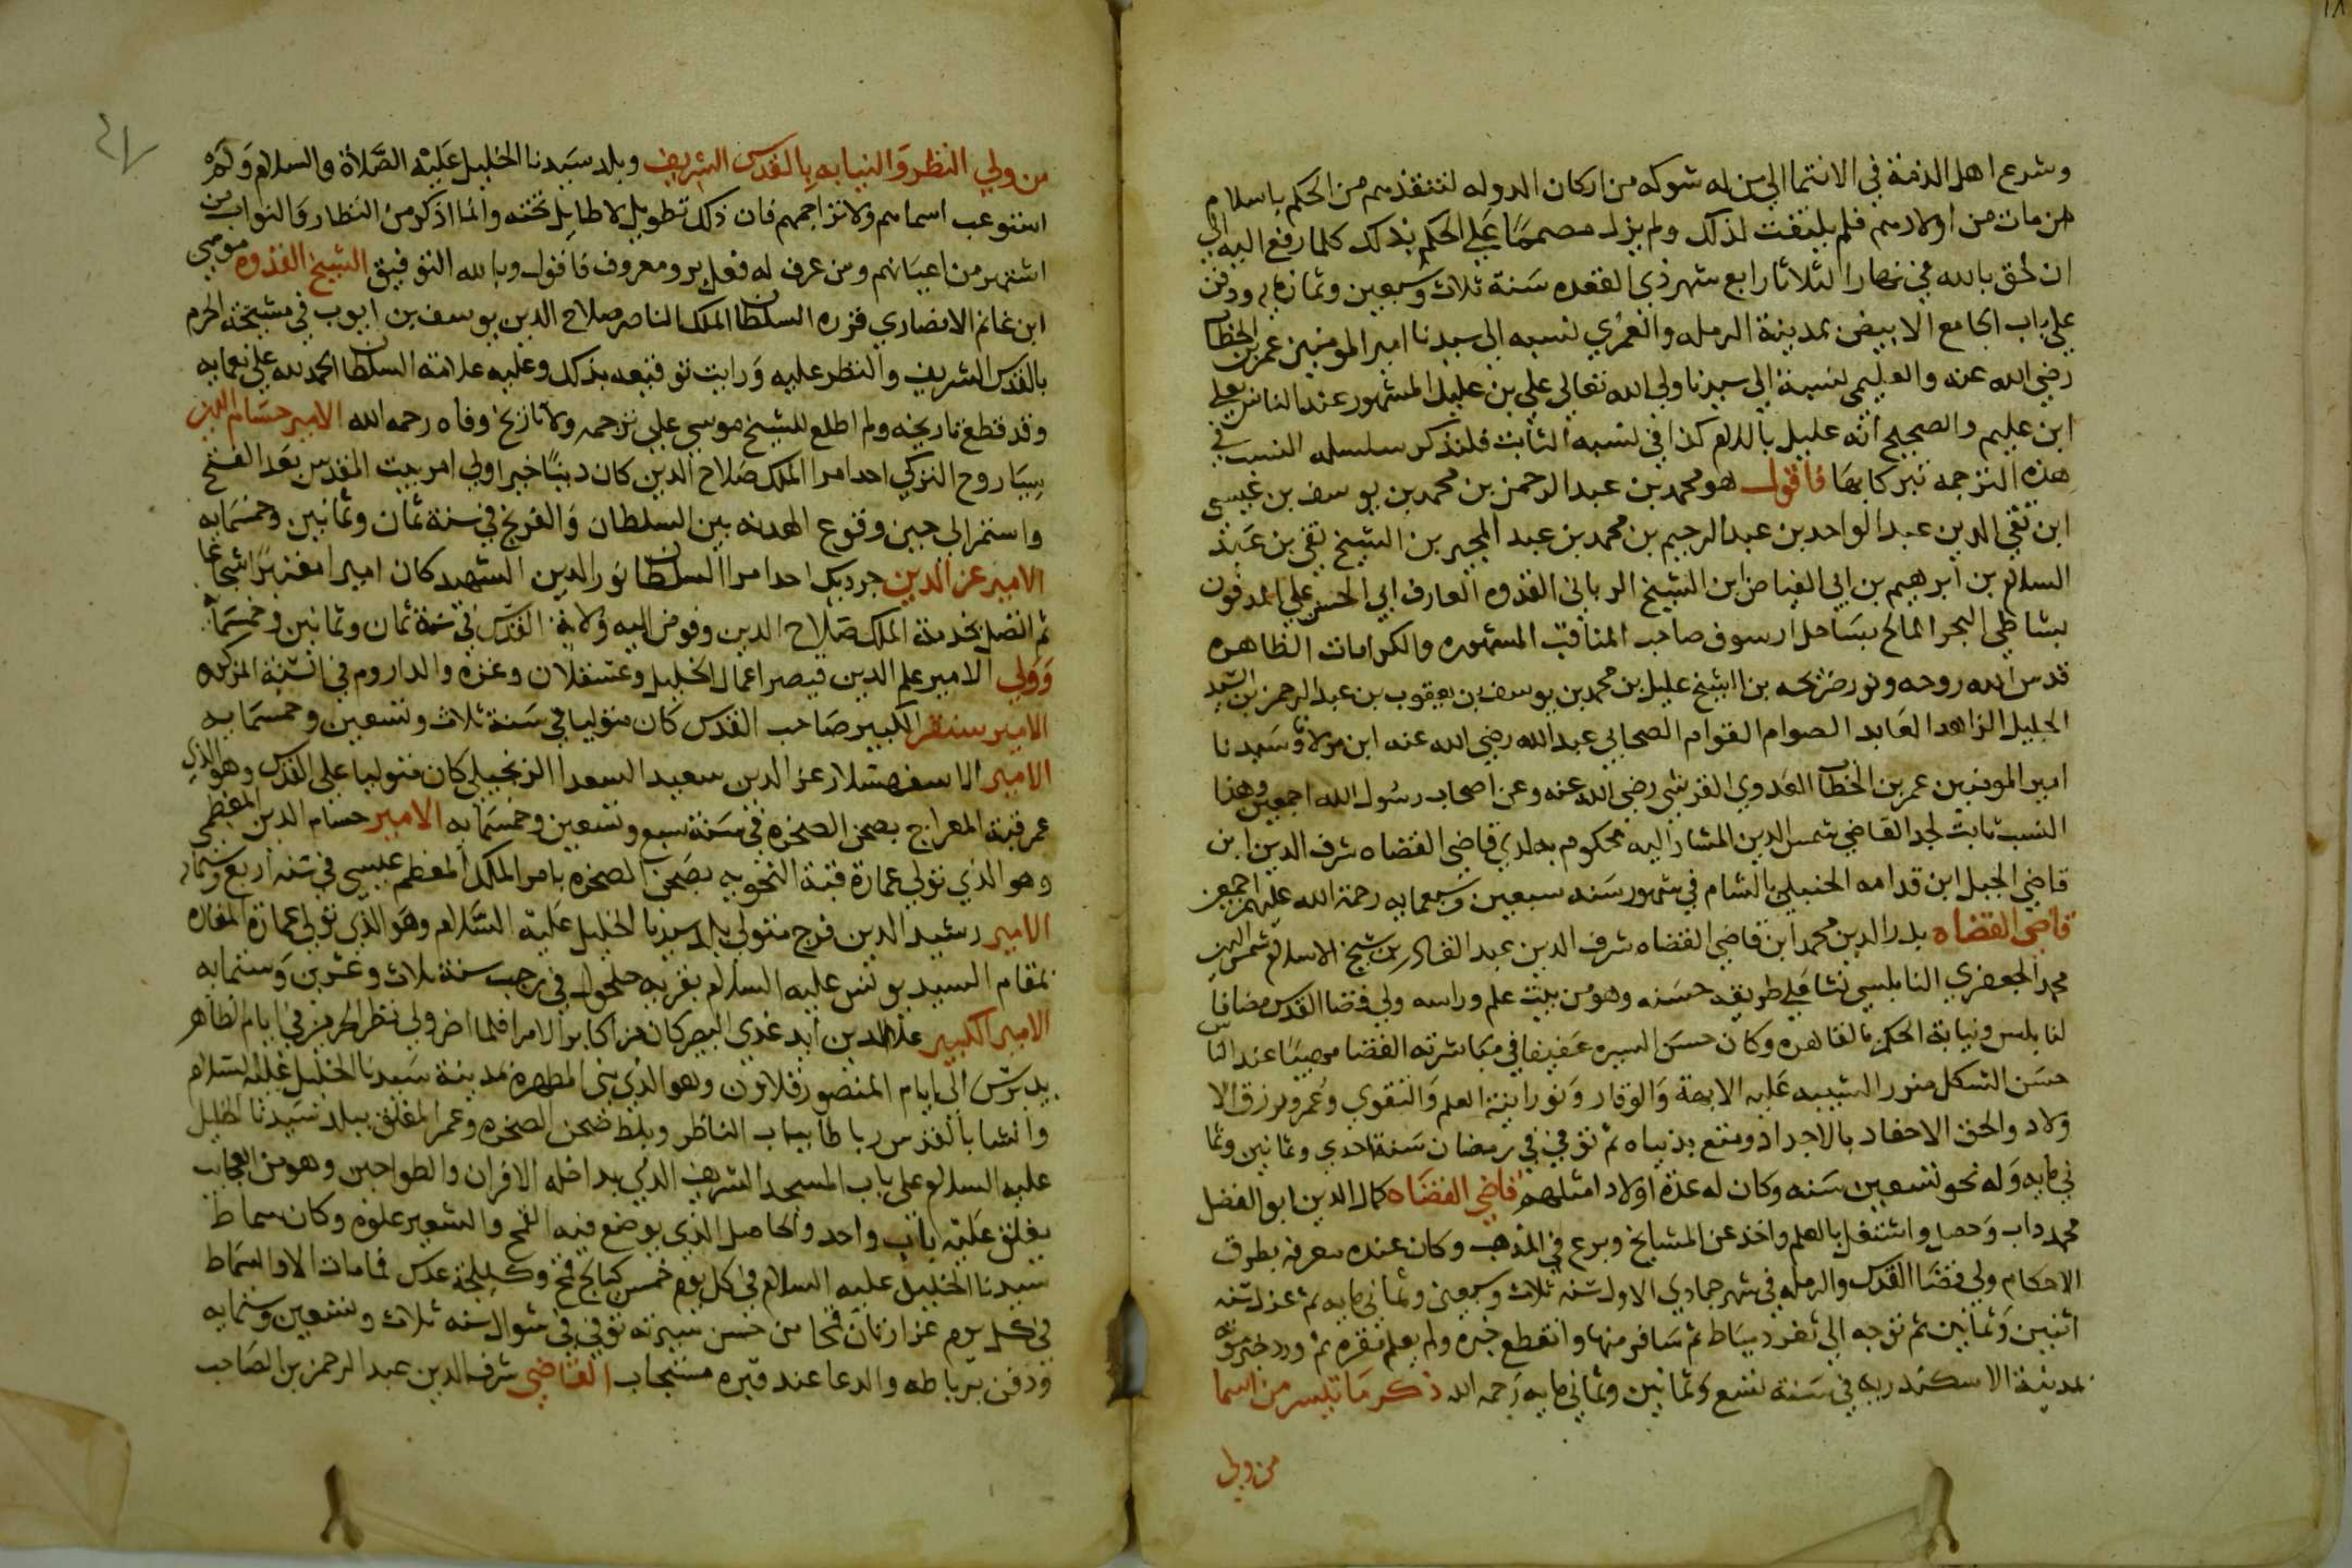 وشرع اهل الذمة في الانتما الى من له شوكه من اركان الدوله لتنقذهم من الحكم باسلام
من مات من اولادهم فلم يلتفت لذلك ولم يزل مصمما على الحكم بذلك كلما رفع اليه الى
ان لحق بالله في نهار الثلاثا رابع شهر ذي القعده سنة ثلاث وسبعين وثمانمايه ودفن
على باب الجامع الابيض بمدينة الرمله والعمري نسبه الى سيدنا امير المومنين عمر بن الخطاب
رضي الله عنه والعليمي نسبة الى سيدنا ولي الله تعالى علي بن عليل المشهور عند الناس بعلي
ابن عليم والصحيح انه عليل باللام كذا في نسبه الثابت فلنذكر سلسله النسب في
هذه الترجمه تبركا بها فاقول هو محمد بن عبد الرحمن بن محمد بن يوسف بن عيسى
ابن تقي الدين عبد الواحد بن عبد الرحيم بن محمد بن عبد المجير بن الشيخ تقي بن عبد
السلام بن ابرهيم بن ابي الفياض ابن الشيخ الرباني القدوه العارف ابي الحسن علي المدفون
بشاطي البحر المالح بساحل ارسوف صاحب المناقب المشهوره والكرامات الظاهره
قدس الله روحه ونور ضريحه بن الشيخ عليل بن محمد بن يوسف بن يعقوب بن عبد الرحمن بن السيد
الجليل الزاهد العابد الصوام القوام الصحابي عبد الله رضي الله عنه ابن مولانا وسيدنا
امير المومنين عمر بن الخطاب العدوي القرشي رضي الله عنه وعن اصحاب رسول الله اجمعين وهذا
النسب ثابت لجد القاضي شمس الدين المشار اليه محكوم به لدي قاضي القضاه شرف الدين ابن
قاضي الجبل ابن قدامه الحنبلي بالشام في شهور سنه سبعين وسبعمايه رحمة الله عليهم اجمعين
قاضي القضاه بدر الدين محمد ابن قاضي القضاه شرف الدين عبد القادر بن شيخ الاسلام شمس الدين
محمد الجعفري النابلسي نشا علي طريقه حسنه وهو من بيت علم وراسه ولي قضا القدس مضافا
لنابلس ونيابة الحكم بالقاهره وكان حسن السيره عفيفا في مباشرته القضا مهيبا عند الناس
حسن الشكل منور الشيبه عليه الابهة والوقار ونورانية العلم والتقوي وعمر ورزق الا
ولاد والحق الاحفاد بالاجداد ومتع بدنياه ثم توفي في رمضان سنة احدي وثمانين وثما
ني مايه وله نحو تسعين سنه وكان له عدة اولاد امثلهم قاضي القضاه كمال الدين ابو الفضل
محمد داب وحصل واشتغل بالعلم واخذ عن المشايخ وبرع في المذهب وكان عنده معرفه بطرق
الاحكام ولي قضا القدس والرمله في شهر جمادي الاول سنه ثلاث وسبعين وثماني مايه ثم عزل سنه
اثنين وثمانين ثم توجه الى ثغر دمياط ثم سافر منها وانقطع خبره ولم يعلم مقره ثم ورد خبر موته
بمدينة الاسكندريه في سنة تسع وثمانين وثماني مايه رحمه الله ذكر ما تيسر من اسما
من ولي
من ولي النظر والنيابه بالقدس الشريف وبلد سيدنا الخليل عليه الصلاة والسلام ولم
استوعب اسماهم ولا تراجمهم فان ذلك تطويل لا طايل تحته وانما اذكر من النظار والنواب من
اشتهر من اعيانهم ومن عرف له فعل بر ومعروف فاقول وبالله التوفيق الشيخ القدوه موسي
ابن غانم الانصاري قرره السلطان الملك الناصر صلاح الدين يوسف بن ايوب في مشيخة الحرم
بالقدس الشريف والنظر عليه ورايت توقيعه بذلك وعليه علامة السلطان الحمد لله على نعمايه
وقد قطع تاريخه ولم اطلع للشيخ موسي علي ترجمه ولا تاريخ وفاه رحمه الله الامير حسام الدين
سياروح التركي احد امرا الملك صلاح الدين كان دينا خيرا ولي امر بيت المقدس بعد الفتح
واستمر الى حين وقوع الهدنه بين السلطان والفرنج في سنة ثمان وثمانين وخمسمايه
الامير عز الدين جرديك احد امرا السلطان نور الدين الشهيد كان اميرا معتبرا شجاعا
ثم اتصل بخدمة الملك صلاح الدين وفوض اليه ولاية القدس في سنة ثمان وثمانين وخمسمايه
وولي الامير علم الدين قيصر اعمال الخليل وعسقلان وغزه والداروم في السنة المذكوره
الامير سنقر الكبير صاحب القدس كان متوليا في سنة ثلاث وتسعين وخمسمايه
الامير الاسفهسلار عز الدين سعيد السعدا الزنجيلي كان متوليا علي القدس وهو الذي
عمر قبة المعراج بصحن الصخره في سنة سبع وتسعين وخمسمايه الامير حسام الدين المعظمي
وهو الذي تولي عمارة قبة النحويه بصحن الصخره بامر الملك المعظم عيسي في سنه اربع وستمايه
الامير رشيد الدين فرج متولي بلد سيدنا الخليل عليه السلام وهو الذي تولي عمارة المغاره
بمقام السيد يونس عليه السلام بقريه حلحول في رجب سنة ثلاث وعشرين وستمايه
الامير الكبير علا الدين ايدغدي البصير كان من اكابر الامرا فلما اضر ولي نظر الحرمين في ايام الظاهر
بيبرس الى ايام المنصور قلاوون وهو الذي بني المطهره بمدينة سيدنا الخليل عليه السلام
وانشا بالقدس رباطا بباب الناظر وبلط صحن الصخره وعمر المغلق ببلد سيدنا الخليل
عليه السلام على باب المسجد الشريف الذي بداخله الافران والطواحين وهو من العجايب
يغلق عليه باب واحد والحاصل الذي يوضع فيه القمح والشعير علوه وكان سماط
سيدنا الخليل عليه السلام في كل يوم خمس كيالج قمح وكيلجة عدس فما مات الا والسماط
في كل يوم غرارتان قمحا من حسن سيرته توفي في شوال سنه ثلاث وتسعين وستمايه
ودفن برباطه والدعا عند قبره مستجاب القاضي شرف الدين عبد الرحمن بن الصاحب